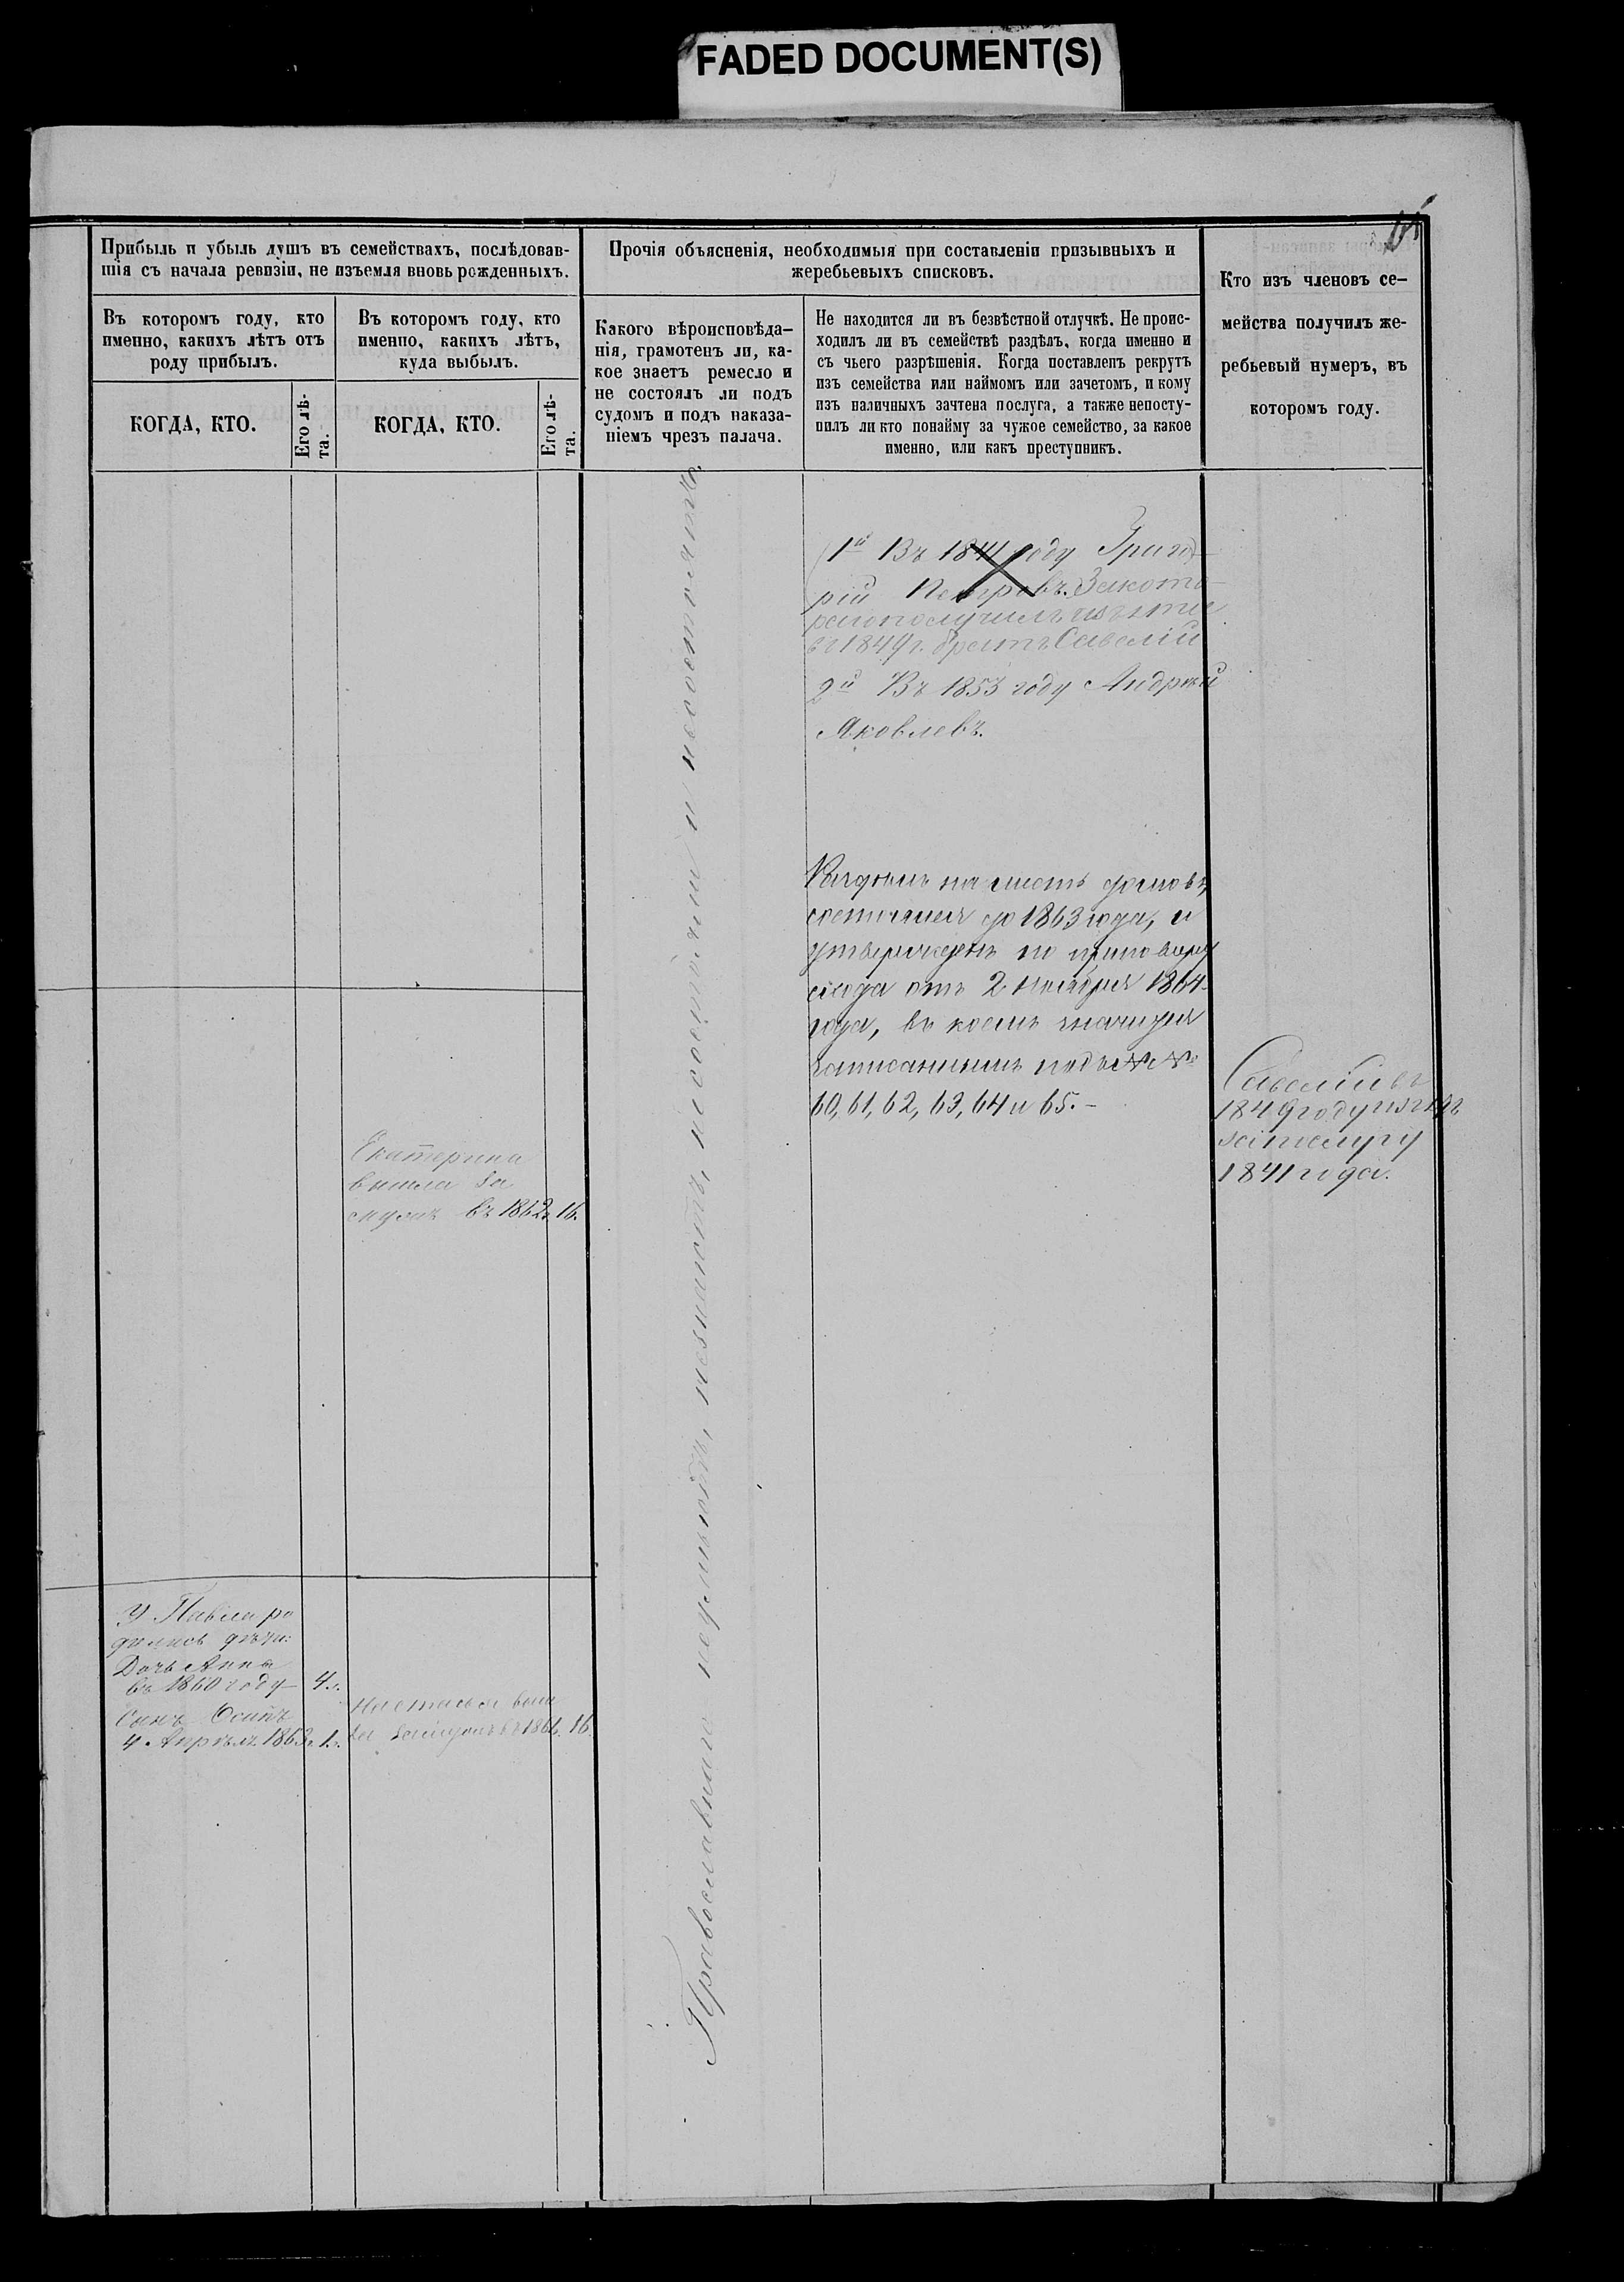 FADED DOCUMENT(S)
Прибыль и убыль душъ въ семействахъ, послѣдовав-
шія съ начала ревизіи, не изъемля вновь рожденныхъ.
Въ которомъ году, кто
именно, какихъ лѣтъ отъ
роду прибылъ.
КОГДА, КТО.
Его лѣ-
та.
Въ которомъ году, кто
именно, какихъ лѣтъ,
куда выбылъ.
КОГДА, КТО.
Его лѣ-
та.
Прочія объясненія, необходимыя при составленіи призывныхъ и
жеребьевыхъ списковъ.
Какого вѣроисповѣда-
нія, грамотенъ ли, ка-
кое знаетъ ремесло и
не состоялъ ли подъ
судомъ и подъ наказа-
ніемъ чрезъ палача.
Не находится ли въ безвѣстной отлучкѣ. Не проис-
ходилъ ли въ семействѣ раздѣлъ, когда именно и
съ чьего разрѣшенія. Когда поставленъ рекрутъ
изъ семейства или наймомъ или зачетомъ, и кому
изъ наличныхъ зачтена послуга, а также непосту-
пилъ ли кто понайму за чужое семейство, за какое
именно, или какъ преступникъ.
Кто изъ членовъ се-
мейства получилъ же-
ребьевый нумеръ, въ
которомъ году.
1й Въ 1841 году Григо-
рій Петровъ. Закото-
раго получилъ
въ 1849 г. братъ Савелій
2й Въ 1853 году Андрей
Яковлевъ.
Раздѣлъ на шесть домовъ,
состоялся до 1863 года, и
утвержденъ по приговору
схода отъ 2 Ноября 1864
года, въ коемъ значутся
записанными подъ №№
60, 61, 62, 63, 64 и 65.-
Савелій въ
1849 году
заполугу
1841 года.
Екатерина
вышла за
мужъ въ 1862 г. 16.
У Павла ро
дилисъ дѣти:
Дочь Анна
въ 1860 году 4 л.
Сынъ Осипъ
4 Апрѣля 1863 г. 1 г.
Настасья выш
ла замужъ въ 1861. 16.
Православнаго неумѣютъ, незнаютъ, несостояли и несостоятъ.